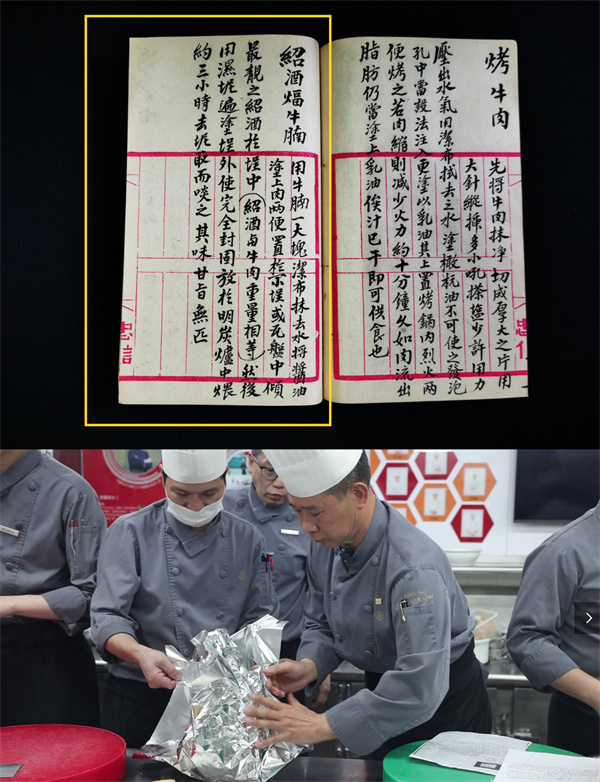 忠信
烤牛肉
先將牛肉抹净切成厚大之片用
大針縱揷多小孔搽塩少許用力
壓出水氣用潔布拭去三水塗橄杬油不可使之發泡
孔中當設法注入更塗以乳油其上置烤鍋内烈火兩
便烤之若肉縮則減少火力約十分鐘久如肉流出
脂肪仍當塗上乳油俟汁已干即可供食也
紹酒煏牛腩
用牛腩一大塊潔布抹去水將醬油
塗上肉两便置於小埕或瓦盤中傾
最靚之紹酒於埕中(紹酒与牛肉重量相等)然後
用濕坭遍塗埕外使完全封固放於明炭爐中煨
約三小時去坭取而啖之其味甘旨無匹
忠信